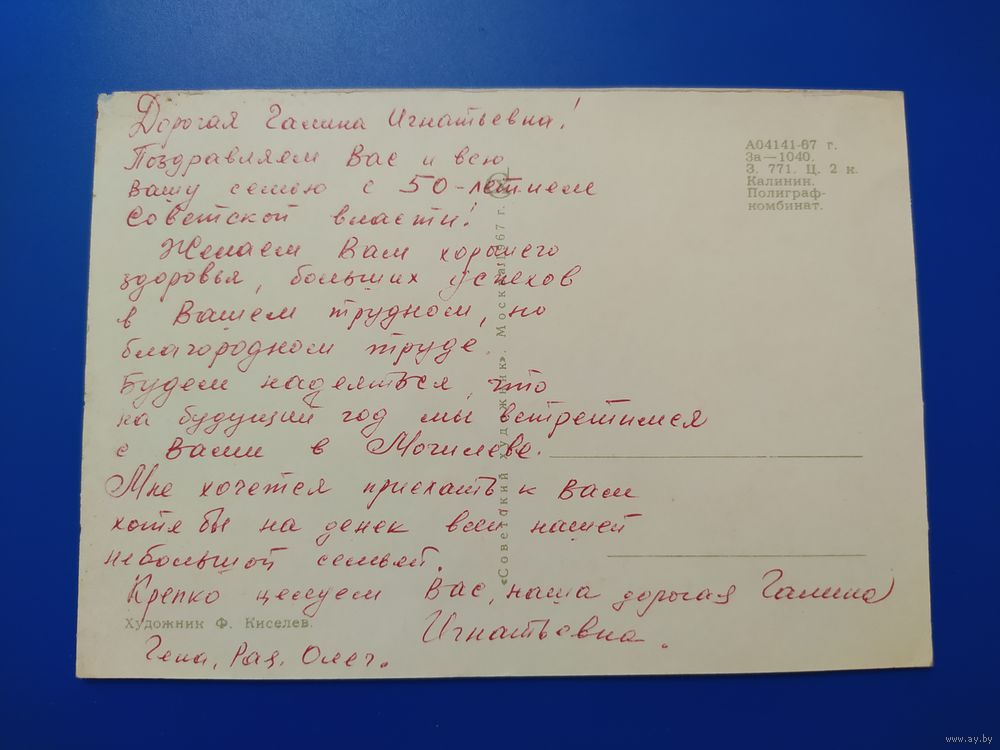 Дорогая Галина Игнатьевна!
Поздравляем Вас и всю
вашу семью с 50-летием
Советской власти!
Желаем Вам хорошего
здоровья, больших успехов
в Вашем трудном, но
благородном труде.
Будем надеяться, что
на будущий год мы встретимся
с Вами в Могилеве.
Мне хочется приехать к Вам
хотя бы на денек всей нашей
небольшой семьей.
Крепко целуем Вас, наша дорогая Галина
Игнатьевна.
Гена, Рая, Олег.
Художник Ф. Киселев.
«Советский художник». Москва. 1967 г.
А04141-67 г.
За—1040.
З. 771. Ц. 2 к.
Калинин.
Полиграф-
комбинат.
www.ay.by